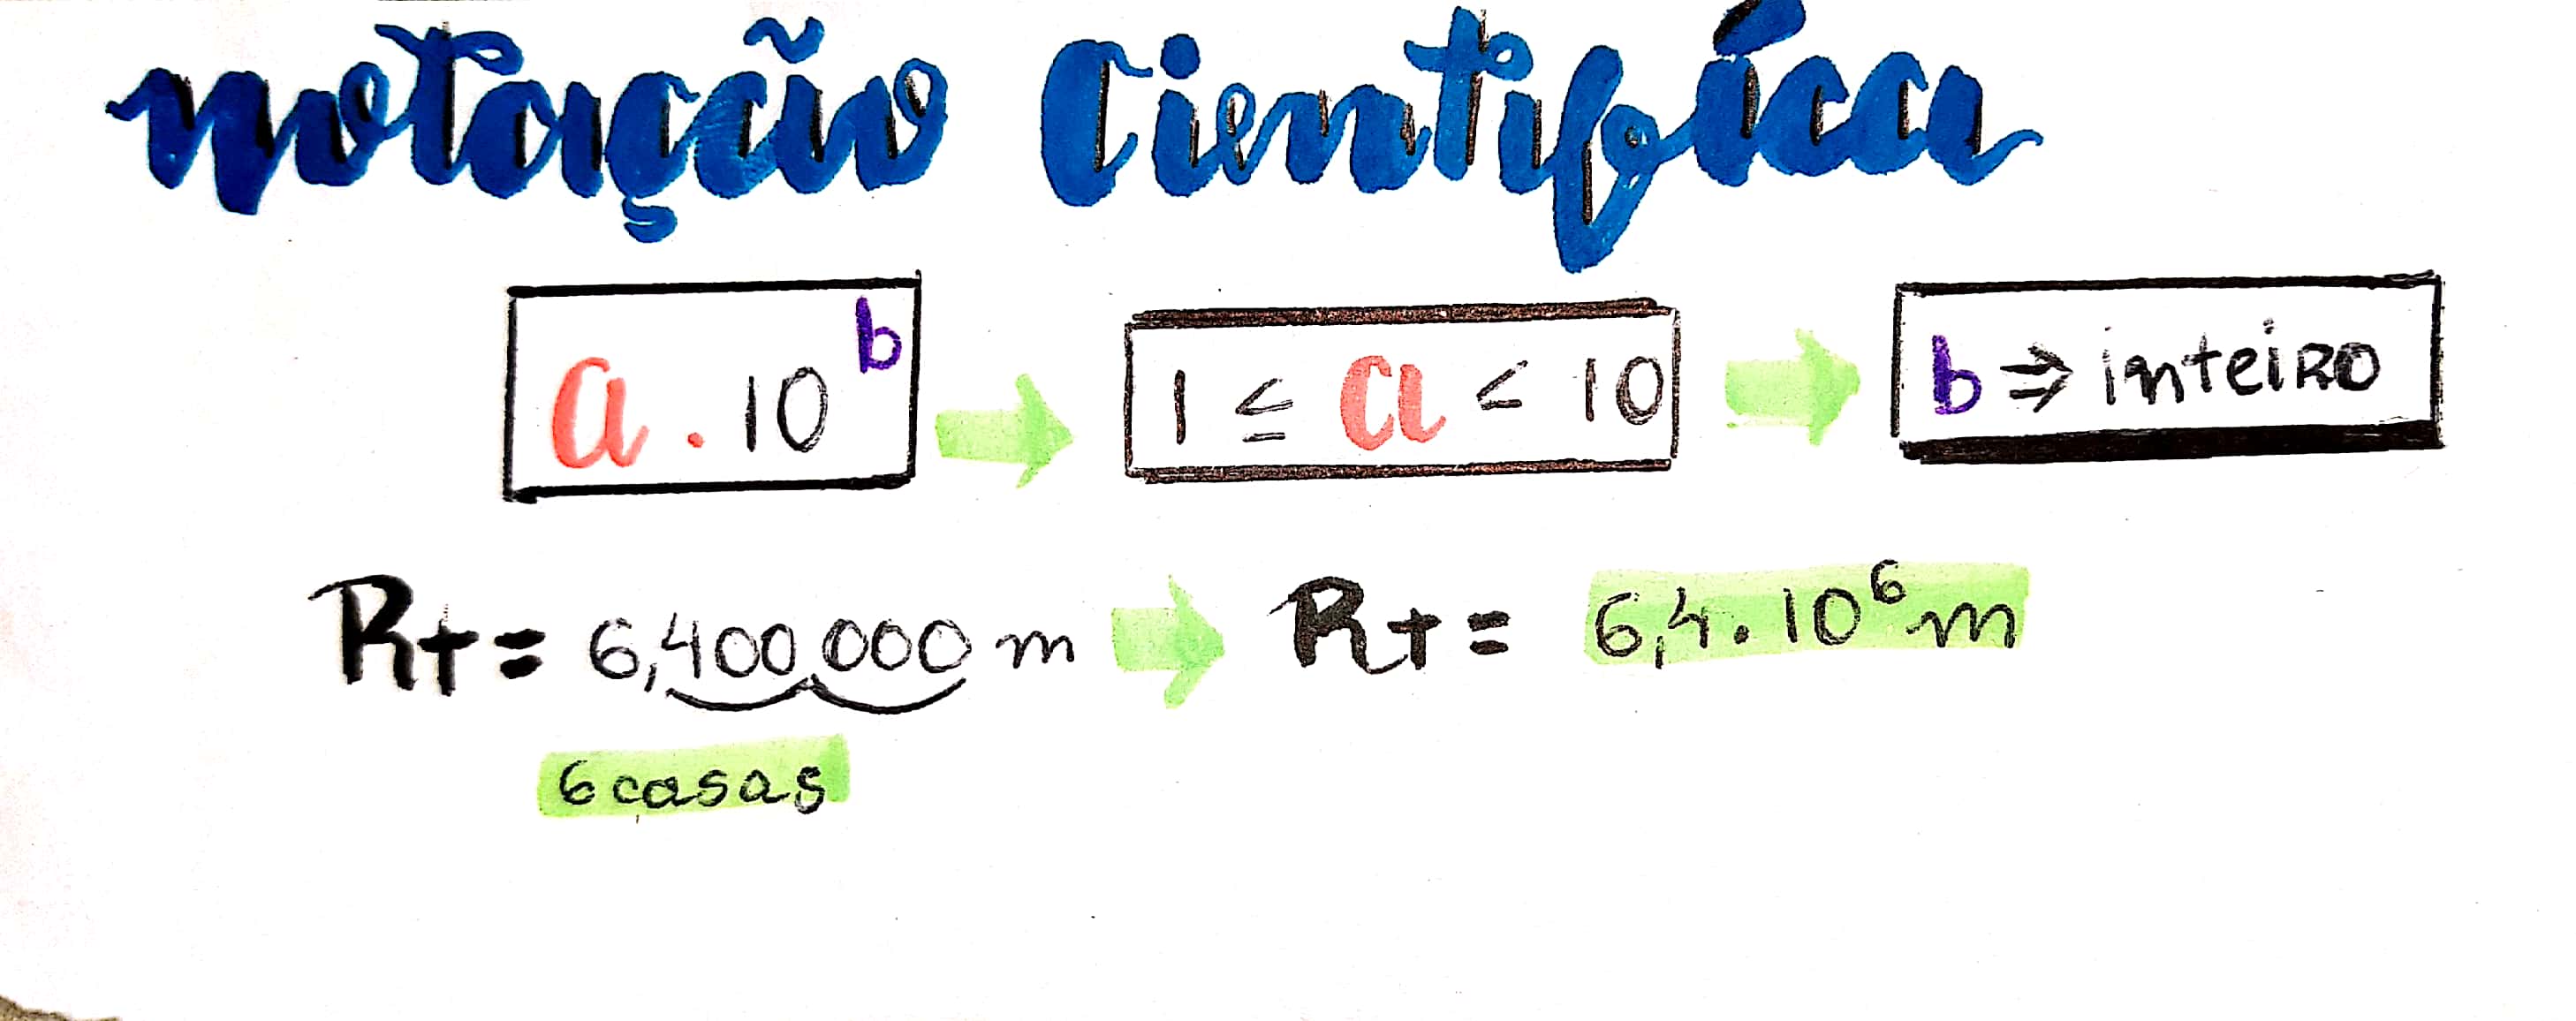 notação Científica
a . 10^b 1 ≤ a < 10 b ⇒ inteiro
Rt = 6,400 000 m Rt = 6,4 . 10^6 m
6 casas